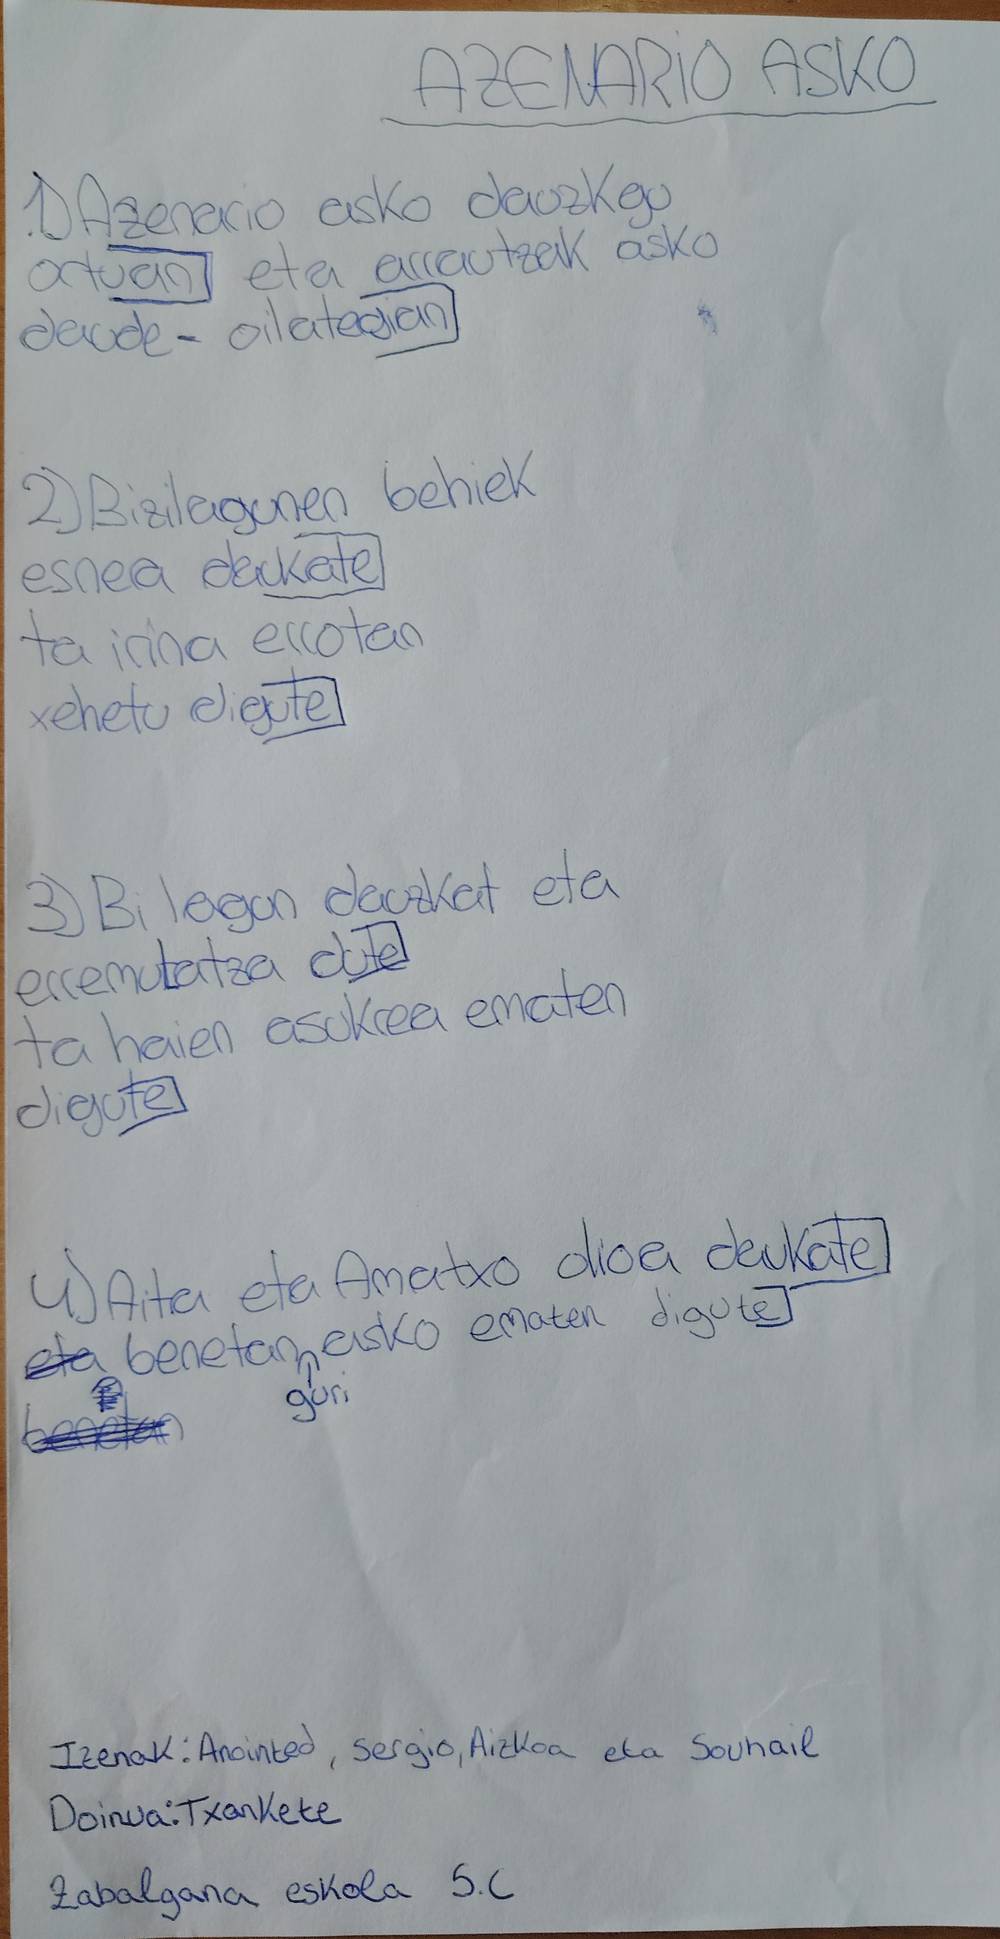 AZENARIO ASKO
1) Azenario asko dauzkgu
ortuan eta arrautzak asko
daude - oilategian
2) Bizilagunen behiek
esnea daukate
ta irina errotan
xehetu digute
3) Bi lagun dauzkat eta
erremulatza dute
ta haien asukrea ematen
digute
4) Aita eta Amatxo dioa daukate
eta benetan asko ematen digute
guri
benetan
Izenak: Anointed, Sergio, Aizkoa eta Souhail
Doinua: Txankete
Zabalgana eskola 5.C